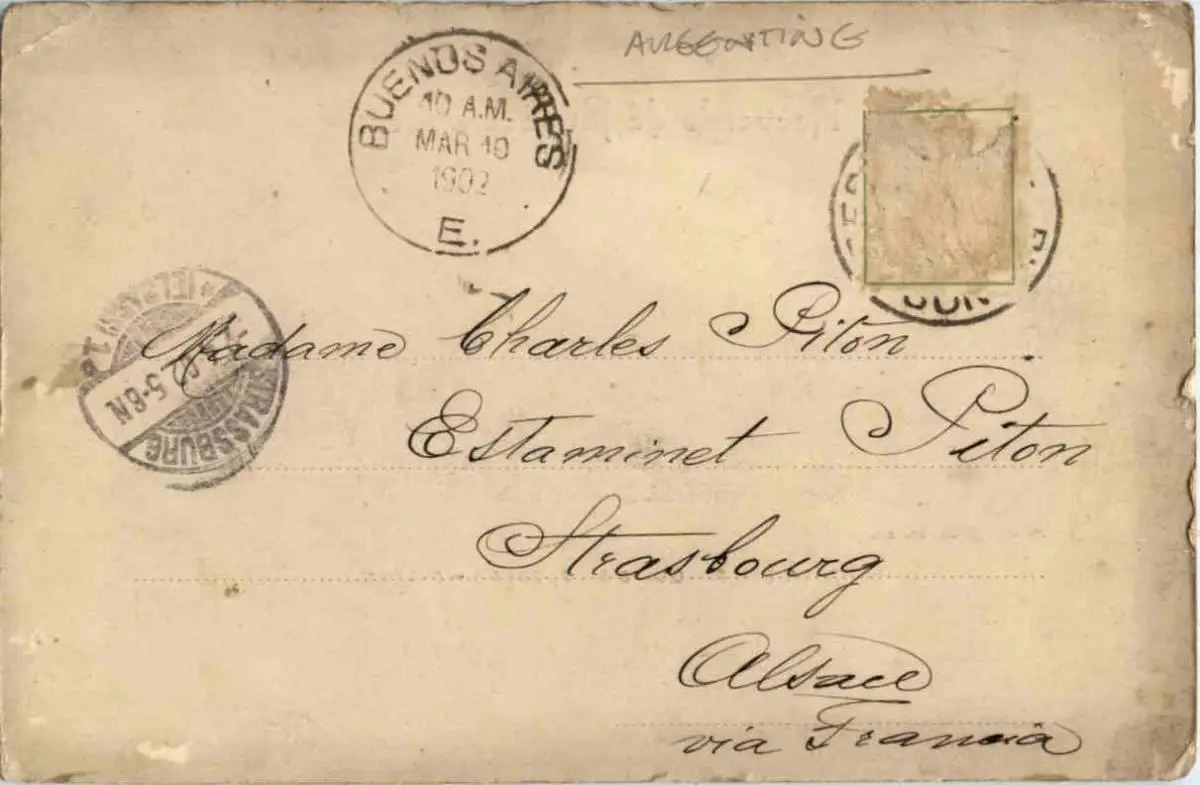 ARGENTINE
BUENOS AIRES
10 A.M.
MAR 10
1902
E.
STRASSBURG
5-6N
Madame Charles Piton
Estaminet Piton
Strasbourg
Alsace
via Francia